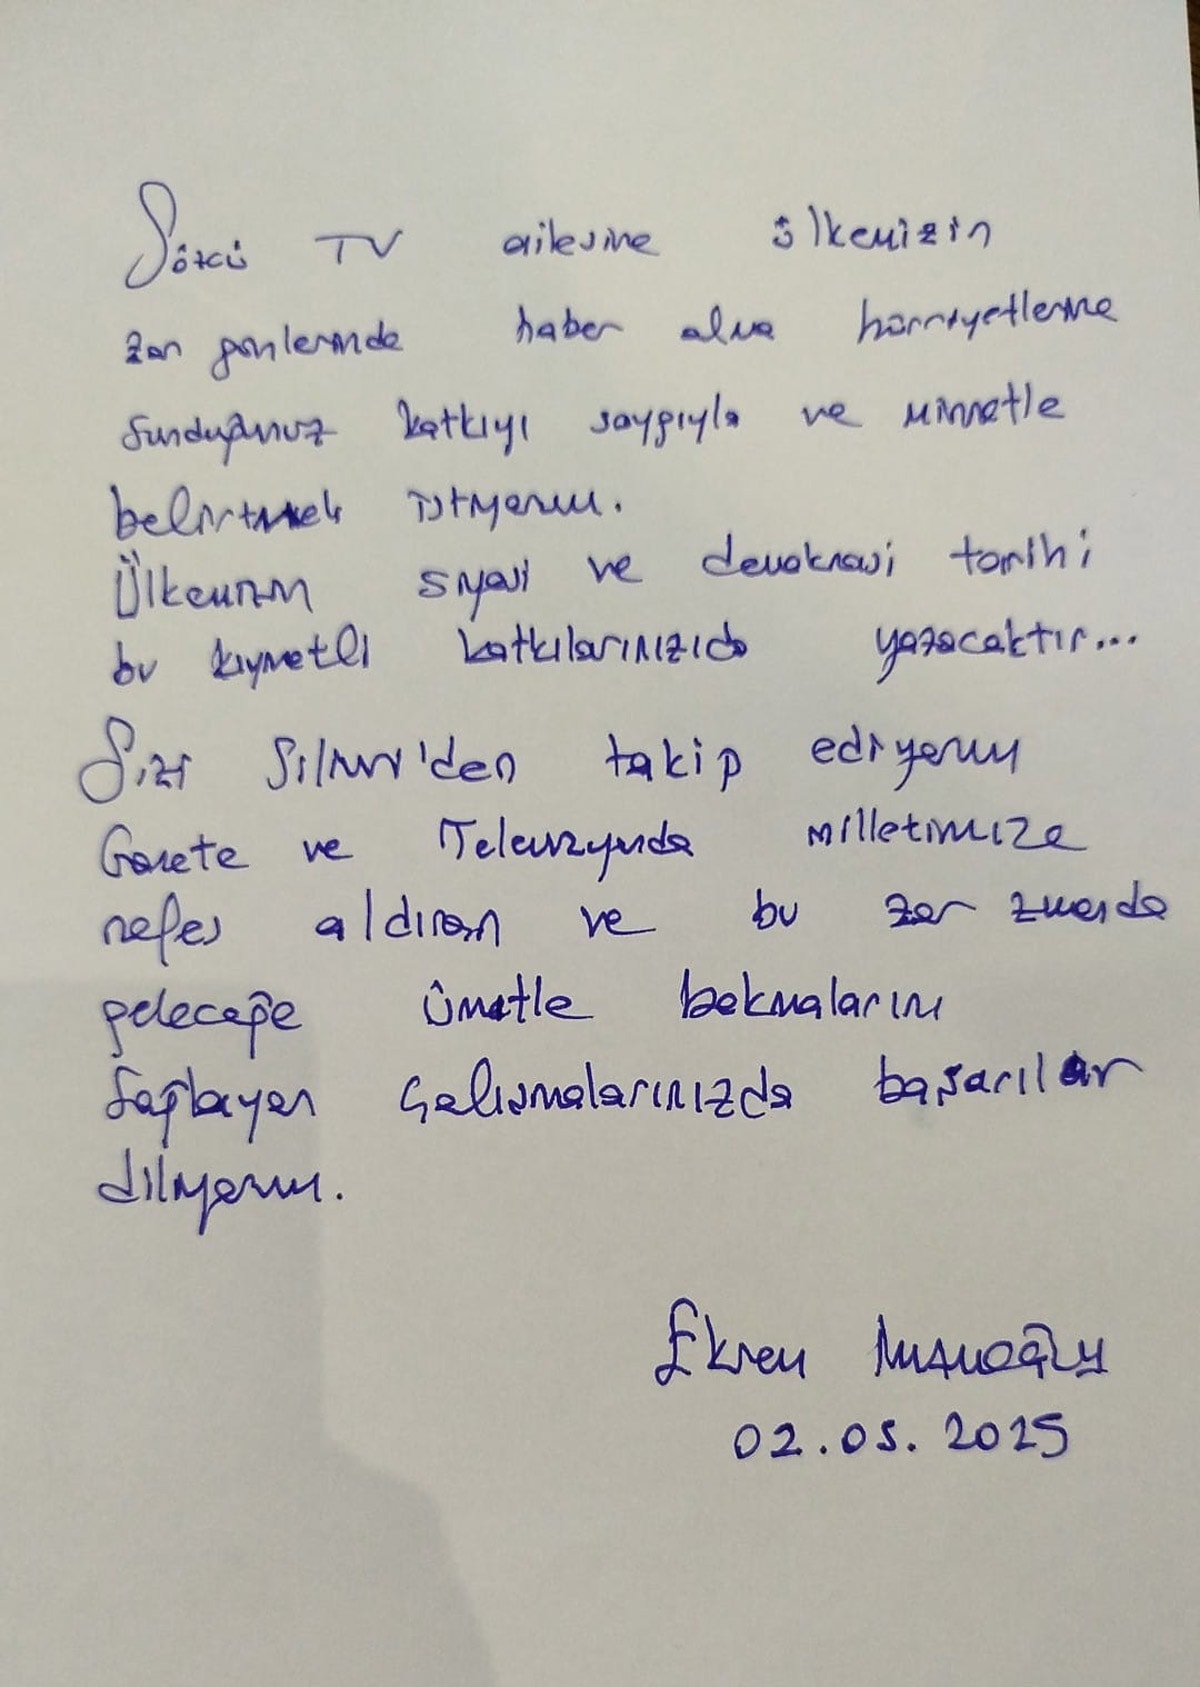 Sözcü TV ailesine ülkemizin
zor günlerinde haber alma hürriyetlerine
sunduğunuz katkıyı saygıyla ve minnetle
belirtmek istiyorum.
Ülkemizin siyasi ve demokrasi tarihi
bu kıymetli katkılarınızıda yazacaktır...
Sizi Silivri'den takip ediyorum
Gazete ve Televizyonda milletimize
nefes aldıran ve bu zor zamanda
geleceğe ümitle bakmalarını
sağlayan çalışmalarınızda başarılar
diliyorum.
Ekrem İmamoğlu
02.05.2025